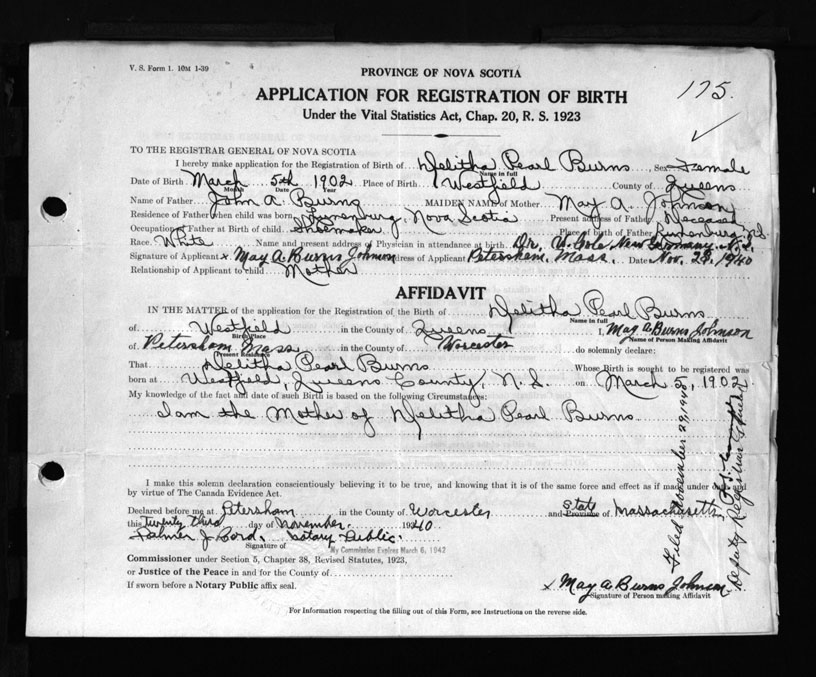 V. S. Form 1. 10M 1-39
PROVINCE OF NOVA SCOTIA
175.
APPLICATION FOR REGISTRATION OF BIRTH
Under the Vital Statistics Act, Chap. 20, R. S. 1923
TO THE REGISTRAR GENERAL OF NOVA SCOTIA
I hereby make application for the Registration of Birth of Delitha Pearl Burns Sex Female
Name in full
Date of Birth March 5th 1902 Place of Birth Westfield County of Queens
Month Date Year
Name of Father John A. Burns MAIDEN NAME of Mother May A Johnson
Residence of Father when child was born Lunenburg Nova Scotia Present address of Father Deceased
Occupation of Father at Birth of child Shoemaker Place of birth of Father Lunenburg N.S.
Race. White Name and present address of Physician in attendance at birth. Dr. Cole New Germany N.S.
Signature of Applicant x May A. Burns Johnson Address of Applicant Petersham, Mass. Date Nov. 23, 1940
Relationship of Applicant to child Mother
AFFIDAVIT
IN THE MATTER of the application for the Registration of the Birth of Delitha Pearl Burns
Name in full
of Westfield in the County of Queens I, May A. Burns Johnson
Birth Place Name of Person Making Affidavit
of Petersham Mass in the County of Worcester do solemnly declare:
Present Residence
That Delitha Pearl Burns Whose Birth is sought to be registered was
born at Westfield, Queens County, N.S. on March 5, 1902
My knowledge of the fact and date of such Birth is based on the following Circumstances:
I am the Mother of Delitha Pearl Burns
I make this solemn declaration conscientiously believing it to be true, and knowing that it is of the same force and effect as if made under oath and
by virtue of The Canada Evidence Act.
Declared before me at Petersham in the County of Worcester and Province State of Massachusetts
this twenty third day of November 1940
Notary Public.
Signature of My Commission Expires March 6, 1942
Commissioner under Section 5, Chapter 38, Revised Statutes, 1923,
or Justice of the Peace in and for the County of
If sworn before a Notary Public affix seal.
x May A Burns Johnson
Signature of Person making Affidavit
For Information respecting the filling out of this Form, see Instructions on the reverse side.
Filed November 29, 1940
Deputy Registrar General